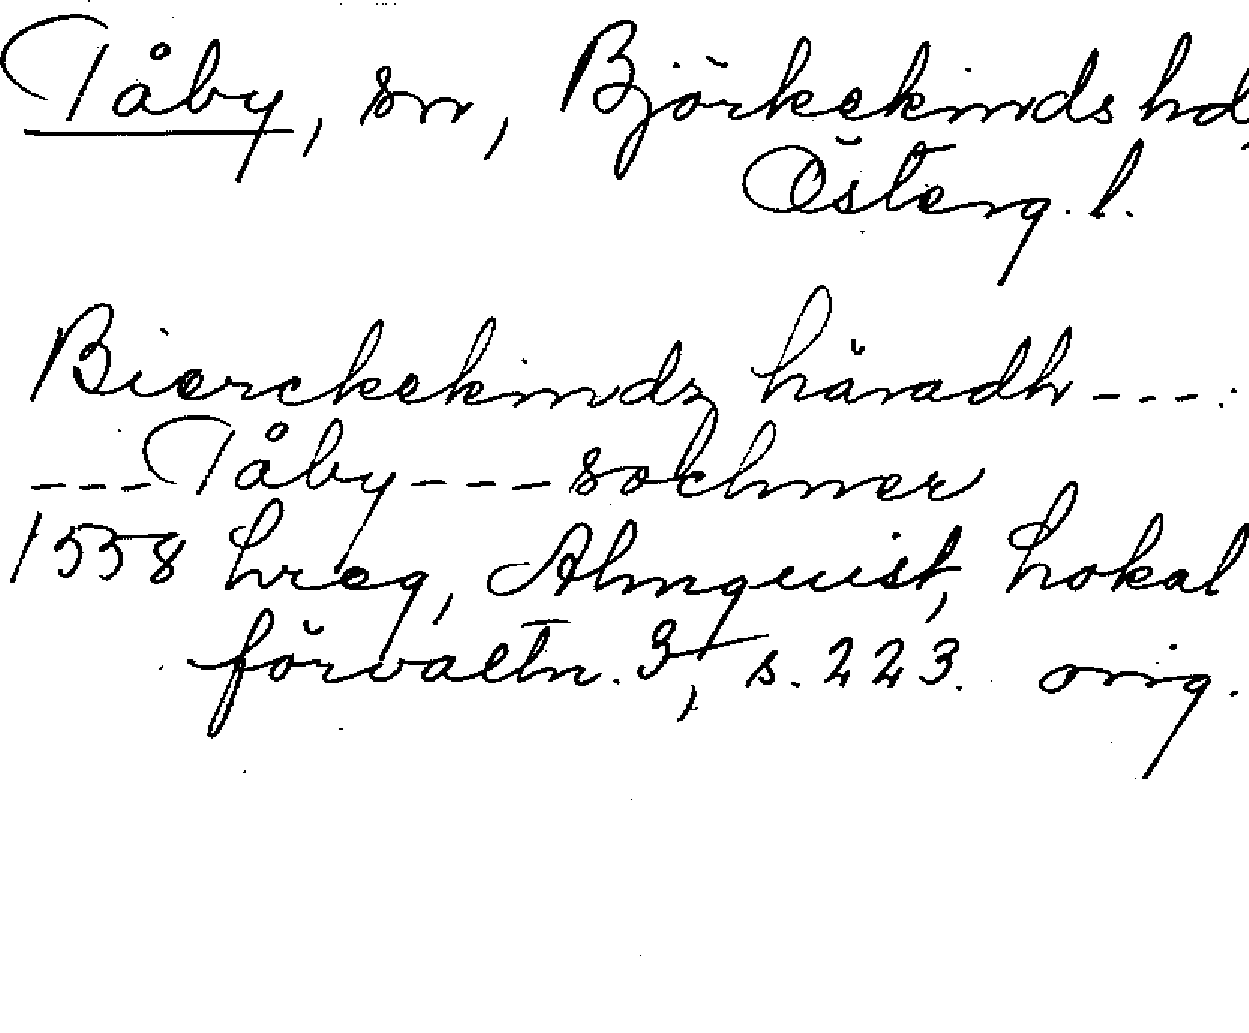 Tåby, sn, Björkekinds hd,
Österg. l.
Bierckekindz häradh ---:
--- Tåby --- sochner
1558 Lreg, Almquist, Lokal
förvaltn. 3, s. 223. orig.